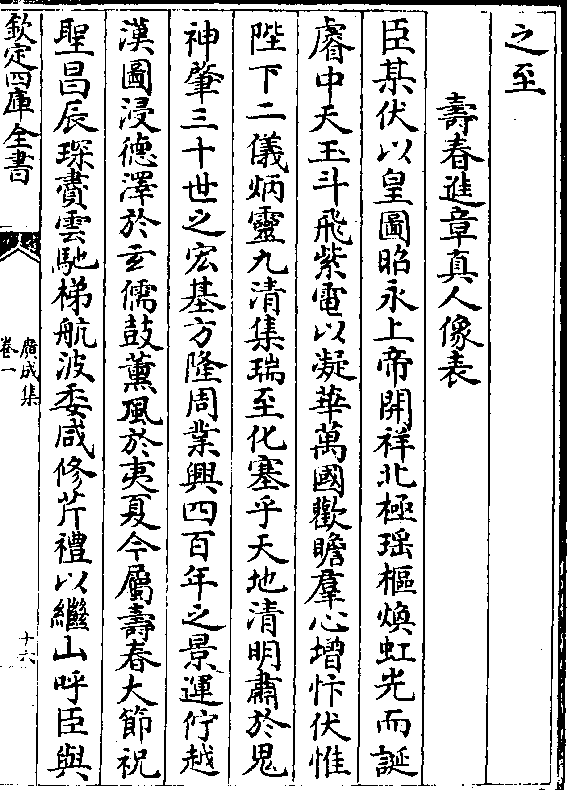 之至
壽春進章真人像表
臣某伏以皇圖昭永上帝開祥北極瑶樞煥虹光而誕
睿中天玉斗飛紫電以凝華萬國歡瞻羣心增忭伏惟
陛下二儀炳靈九清集瑞至化塞乎天地清明肅於鬼
神肇三十世之宏基方隆周業興四百年之景運佇越
漢圖浸德澤於玄儒鼓薰風於夷夏今屬壽春大節祝
聖昌辰琛賮雲馳梯航波委咸修芹禮以繼山呼臣與
欽定四庫全書
廣成集
卷一
十六